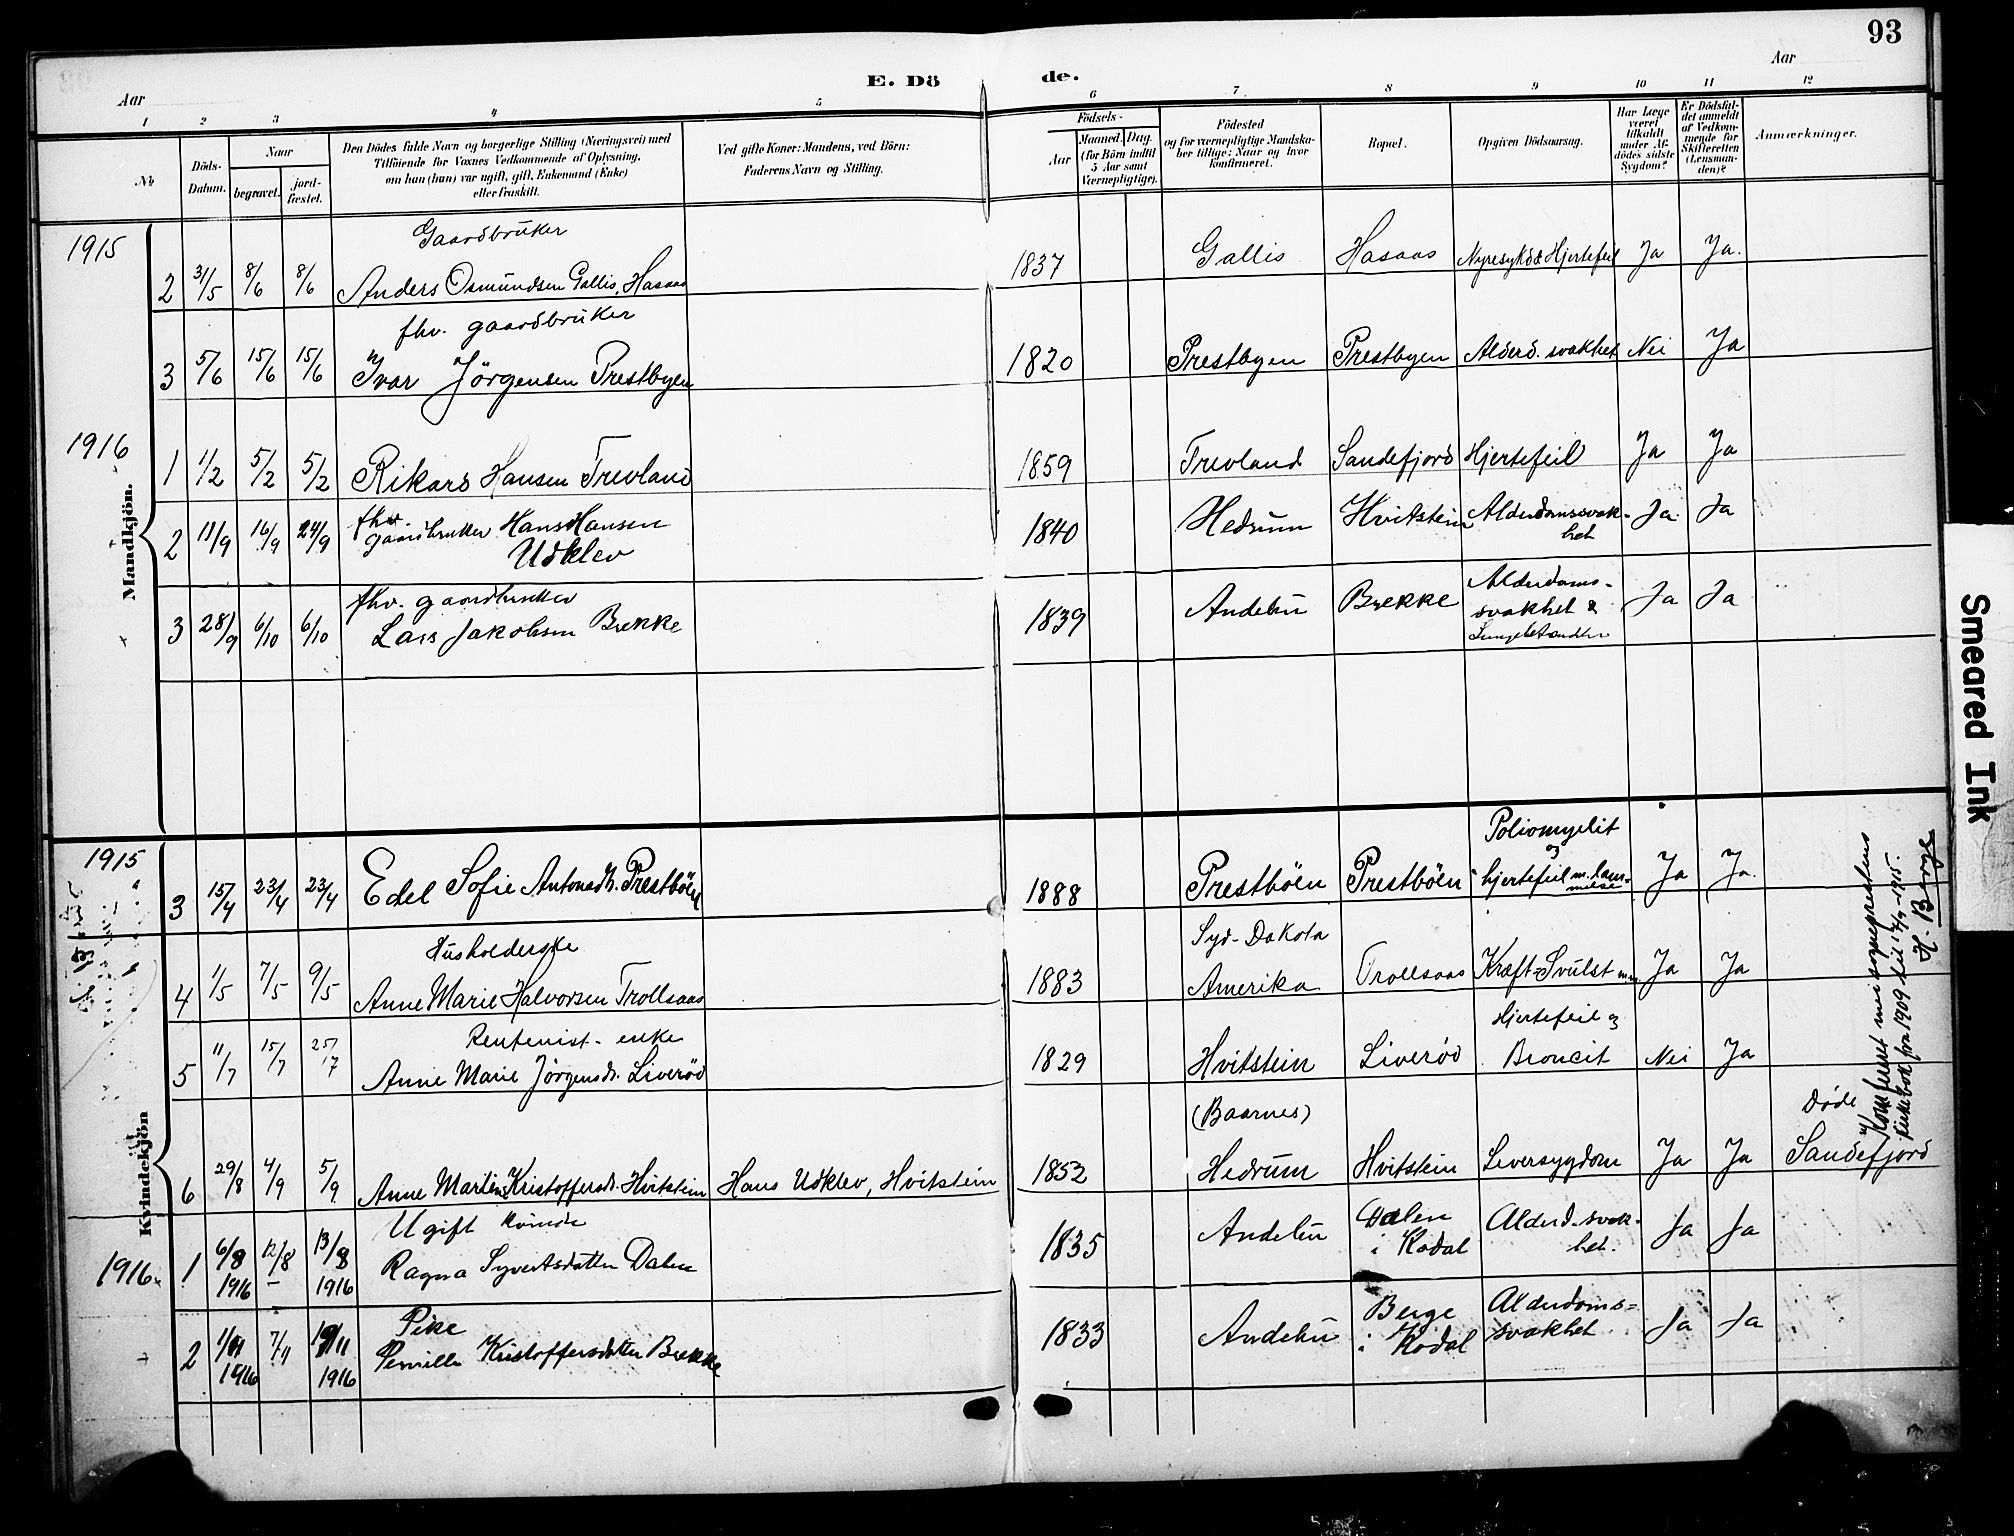 93
E. Dö de.
Aar Aar
1 2 3 4 5 6 7 8 9 10 11 12
№ Döds-Datum. Naar begravet. jordfæstet. Den Dödes fulde Navn og borgerlige Stilling (Næringsvei) med Tilföiende for Voxnes Vedkommende af Oplysning, om han (hun) var ugift, gift, Enkemand (Enke) eller fraskilt. Ved gifte Koner: Mandens, ved Börn: Faderens Navn og Stilling. Födsels- Aar Maaned. Dag. (for Börn indtil 5 Aar samt Værnepligtige). Födested og for værnepligtige Mandskaber tillige: Naar og hvor konfirmeret. Bopæl. Opgiven Dödsaarsag. Har Læge været tilkaldt under Afdödes sidste Sygdom? Er Dödsfaldet anmeldt af Vedkommende for Skifteretten (Lensmanden)? Anmærkninger.
Mandkjön.
1915
Gaardbruker
2 31/5 8/6 8/6 Anders Osmundsen Gallis, Hasaas 1837 Gallis Hasaas Nyresykd & Hjertefeil Ja Ja.
fhv. gaardbruker
3 5/6 15/6 15/6 Ivar Jörgensen Prestbyen 1820 Prestbyen Prestbyen Alderd. svakhet Nei Ja
1916
1 1/2 5/2 5/2 Rikard Hansen Trevland 1859 Trevland Sandefjord Hjertefeil Ja Ja
2 11/9 16/9 24/9 fhv. gaardbruker Hans Hansen 1840 Hedrum Hvitstein Alderdomssvak- Ja Ja
Udklev het
fhv. gaardbruker Alderdoms-
3 28/9 6/10 6/10 Lars Jakobsen Brekke 1839 Andebu Brekke svakhet & Ja Ja
Kvindekjön
1915
Poliomyelit
og
3 15/4 23/4 23/4 Edel Sofie Antonsdt. Prestböen 1888 Prestböen Prestböen hjertefeil m. lammelse Ja Ja.
Husholderske Syd-Dakota
4 1/5 7/5 9/5 Anne Marie Halvorsen Trollsaas 1883 Amerika Trollsaas Kræft-Svulst m.m. Ja Ja
Rentenist - enke Hjertefeil og
5 11/7 15/7 25/7 Anne Marie Jörgensdt. Liverød 1829 Hvitstein Liverød Broncit Nei Ja
(Baarnes) Døde
6 29/8 4/9 5/9 Anne Martine Kristoffersdt. Hvitstein Hans Udklev, Hvitstein 1852 Hedrum Hvitstein Leversygdom Ja Ja Sandefjord
1916
Ugift kvinde
1 6/8 1916 12/8 13/8 1916 Ragna Syvertsdatter Dalen 1835 Andebu Dalen i Kodal Alderd-svak-het. Ja Ja
Pike
2 1/11 1916 7/11 1916 Pernille Kristoffersdatter Brekke 1833 Andebu Berge i Kodal Alderdoms=svakhet Ja Ja
Konfereret med sogneprestens
kirkebok fra 1909 til 14/9-1915.
H. Berge
Smeared Ink